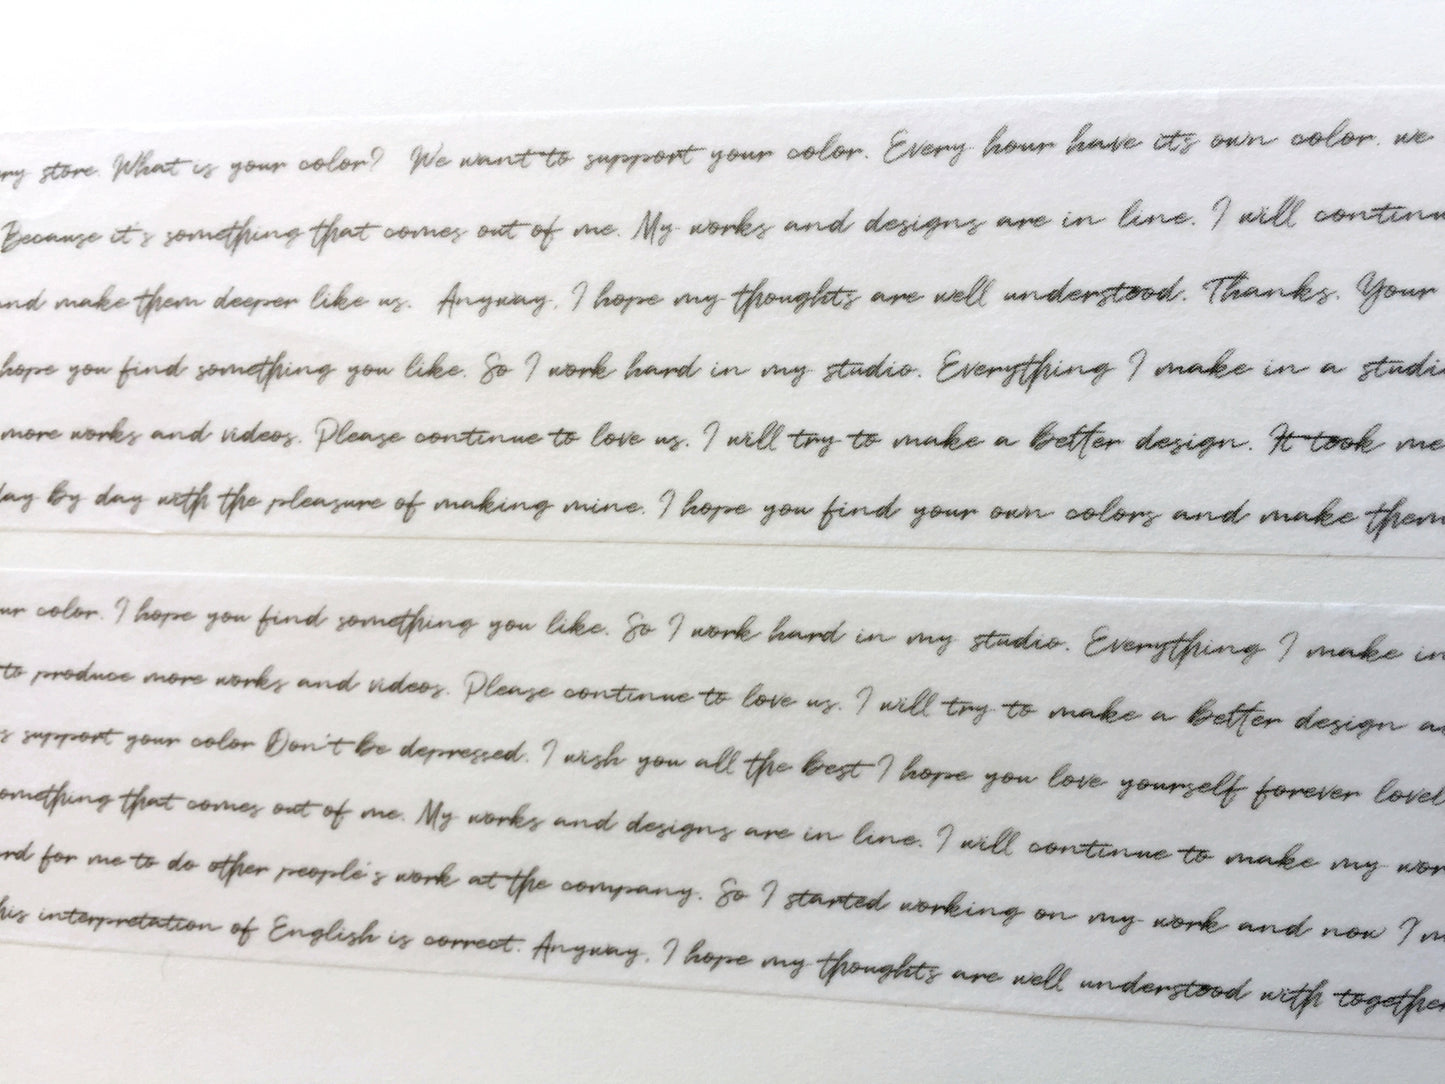 ry store. What is your color? We want to support your color. Every hour have it's own color. we
Because it's something that comes out of me. My works and designs are in line. I will continu
nd make them deeper like us. Anyway, I hope my thoughts are well understood. Thanks. Your
hope you find something you like. So I work hard in my studio. Everything I make in a studi
more works and videos. Please continue to love us. I will try to make a better design. It took me
day by day with the pleasure of making mine. I hope you find your own colors and make them
ur color. I hope you find something you like. So I work hard in my studio. Everything I make in
to produce more works and videos. Please continue to love us. I will try to make a better design a
s support your color Don't be depressed. I wish you all the best I hope you love yourself forever lovel
omething that comes out of me. My works and designs are in line. I will continue to make my wor
rd for me to do other people's work at the company. So I started working on my work and now I m
his interpretation of English is correct. Anyway, I hope my thoughts are well understood with together